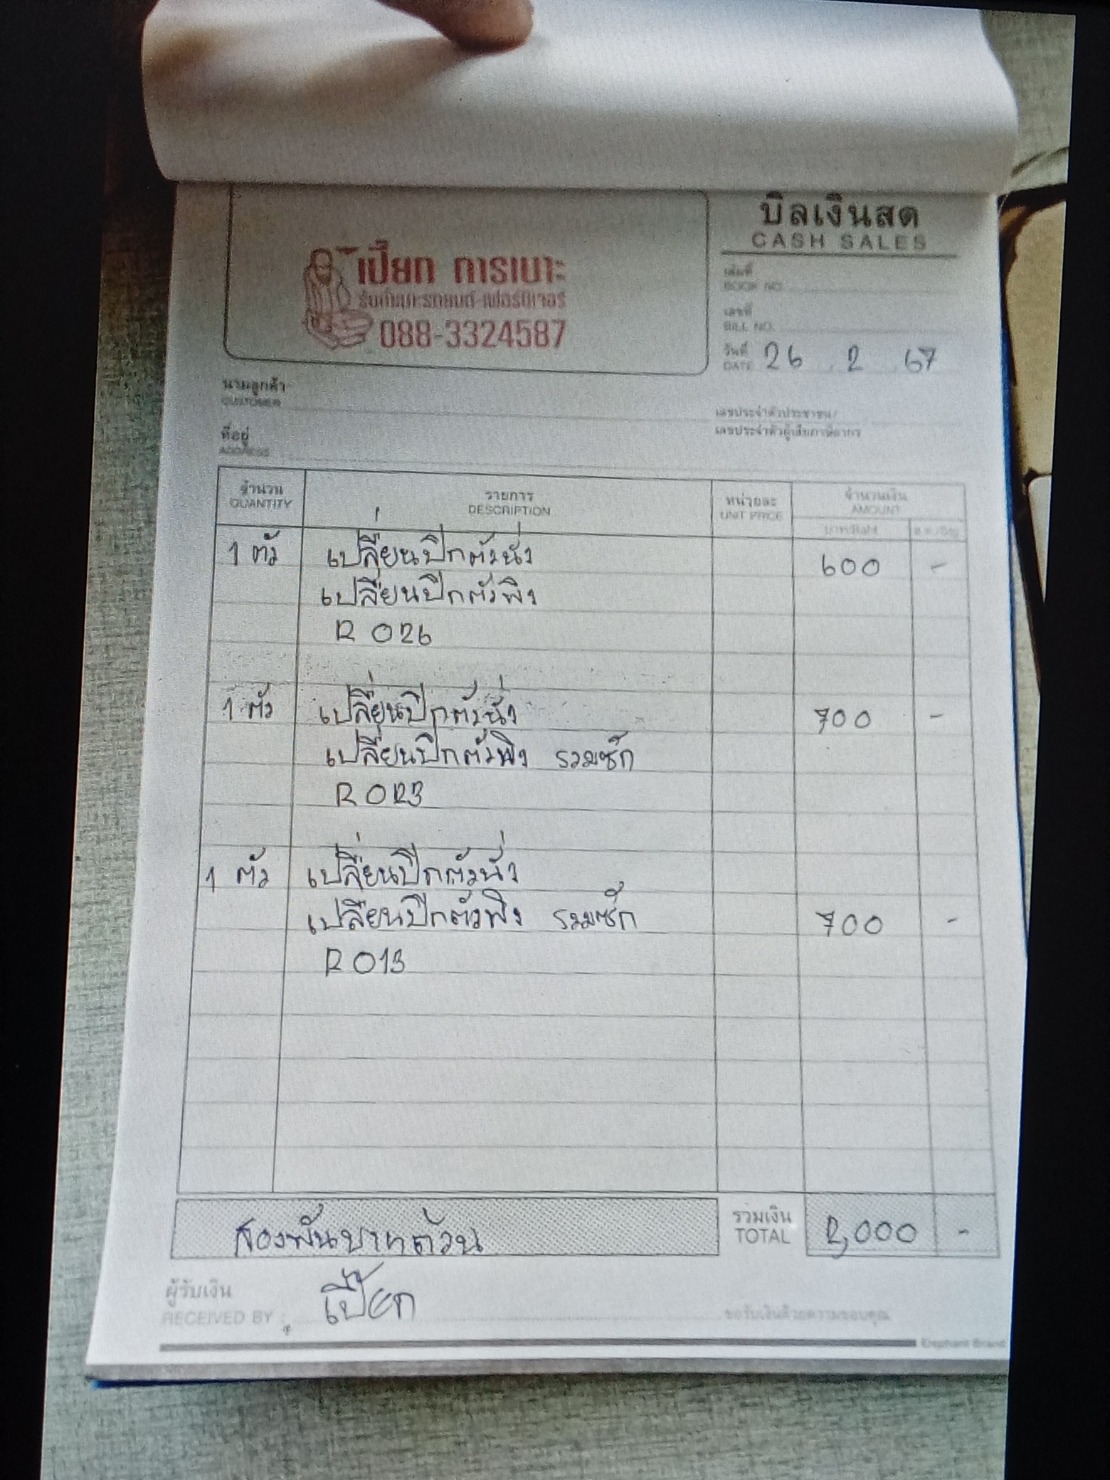 บิลเงินสด
CASH SALES
เปี๊ยก การเบาะ
รับทำเบาะรถยนต์-เฟอร์นิเจอร์
088-3324587
เล่มที่
BOOK NO.
เลขที่
BILL NO.
วันที่ 26 2 67
DATE
นามลูกค้า
CUSTOMER
เลขประจำตัวประชาชน/
เลขประจำตัวผู้เสียภาษีอากร
ที่อยู่
ADDRESS
จำนวน รายการ หน่วยละ จำนวนเงิน
QUANTITY DESCRIPTION UNIT PRICE AMOUNT
บาท/Baht
1 ตัว เปลี่ยนปีกตัวนั่ง 600 -
เปลี่ยนปีกตัวพิง
R 026
1 ตัว เปลี่ยนปีกตัวนั่ง 700 -
เปลี่ยนปีกตัวพิง รวมซัก
R 023
1 ตัว เปลี่ยนปีกตัวนั่ง
เปลี่ยนปีกตัวพิง รวมซัก 700 -
R 013
สองพันบาทถ้วน รวมเงิน 2,000 -
TOTAL
ผู้รับเงิน เปี๊ยก
RECEIVED BY ขอรับเงินด้วยความขอบคุณ
Elephant Brand